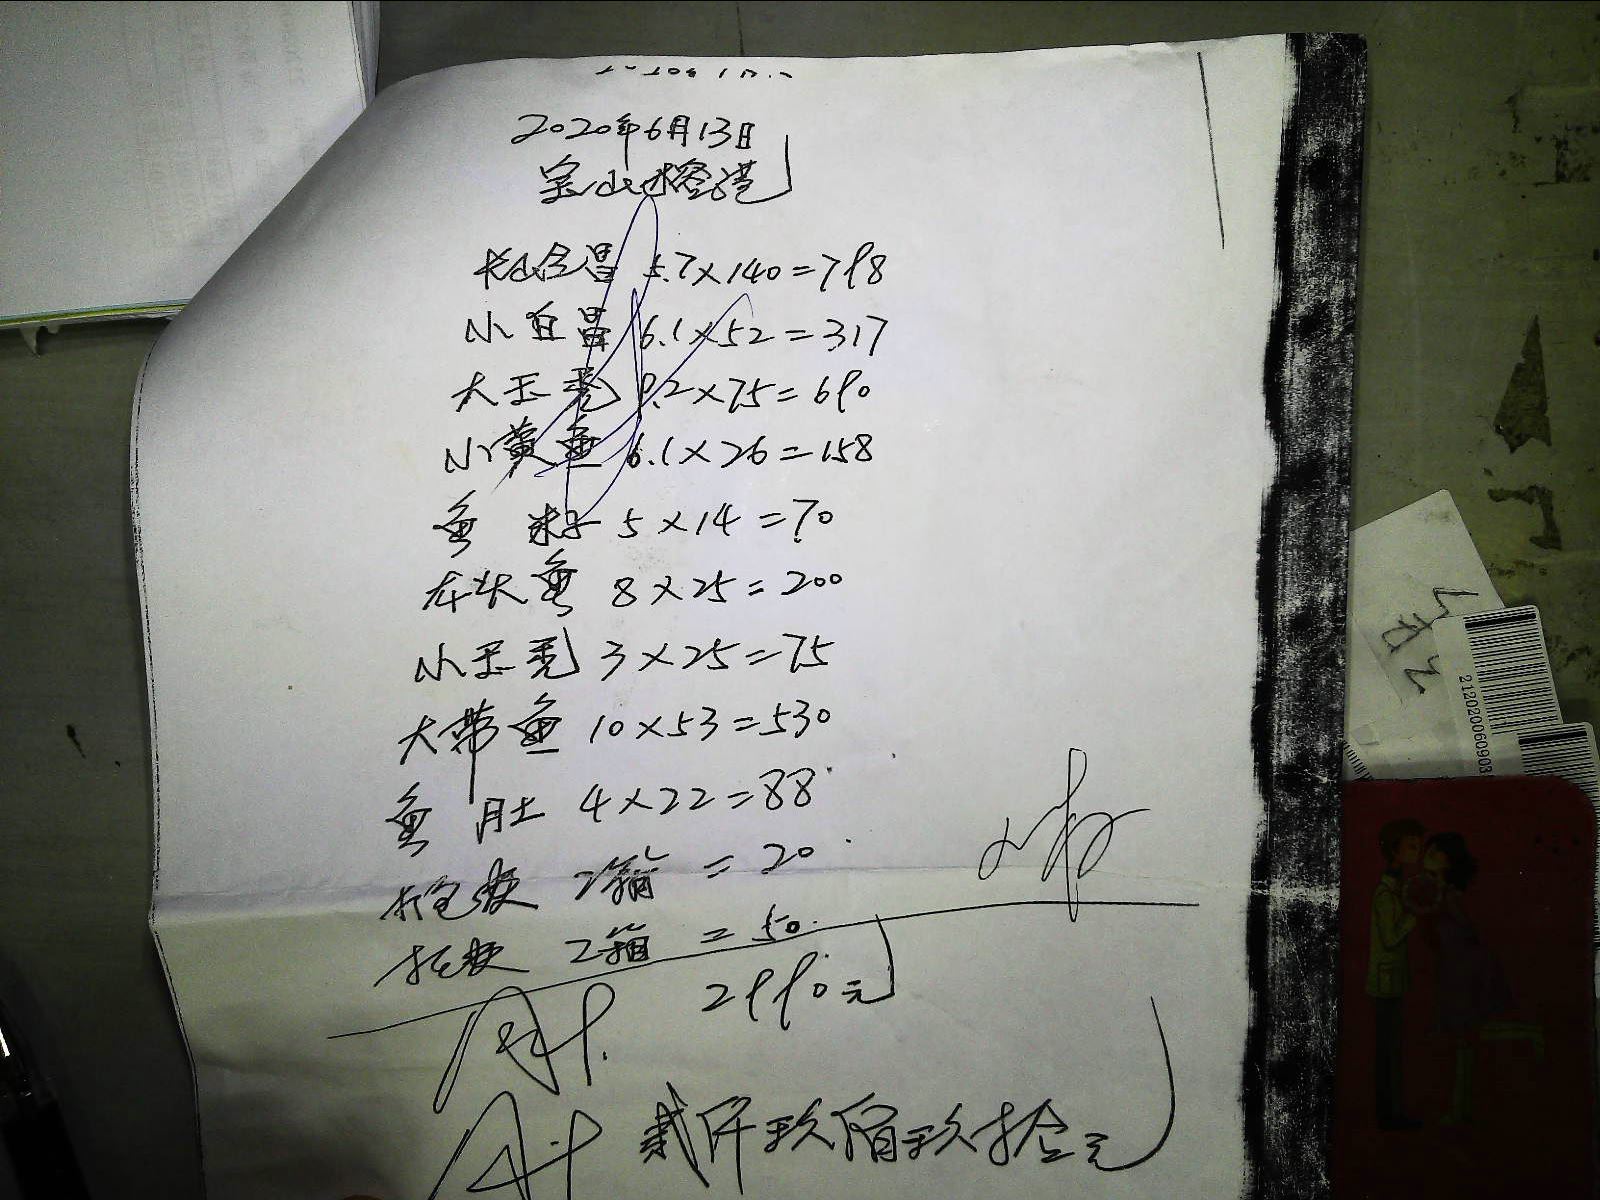 2020年6月13日
宝山榕港
5.7×140=798
小白昌 6.1×52=317
大玉秃 9.2×75=690
小黄鱼 6.1×26=158
鱼 籽 5×14=70
车头鱼 8×25=200
小玉秃 3×25=75
大带鱼 10×53=530
鱼 肚 4×22=88
打包费 2箱 =20
托费 2箱 =50
2990元
贰仟玖佰玖拾元
2120206090